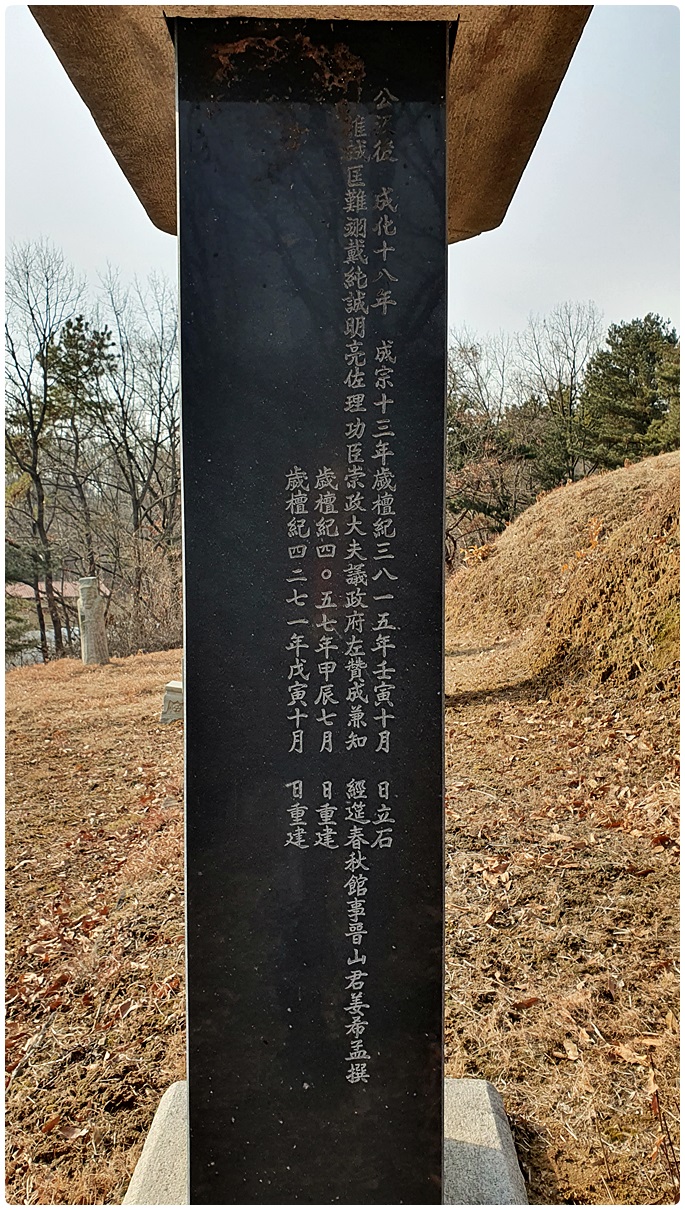 公沒後 成化十八年 成宗十三年歲檀紀三八一五年壬寅十月 日立石
推誠匡難翊戴純誠明亮佐理功臣崇政大夫議政府左贊成兼知 經筵春秋館事晋山君姜希孟撰
歲檀紀四〇五七年甲辰七月 日重建
歲檀紀四二七一年戊寅十月 日重建